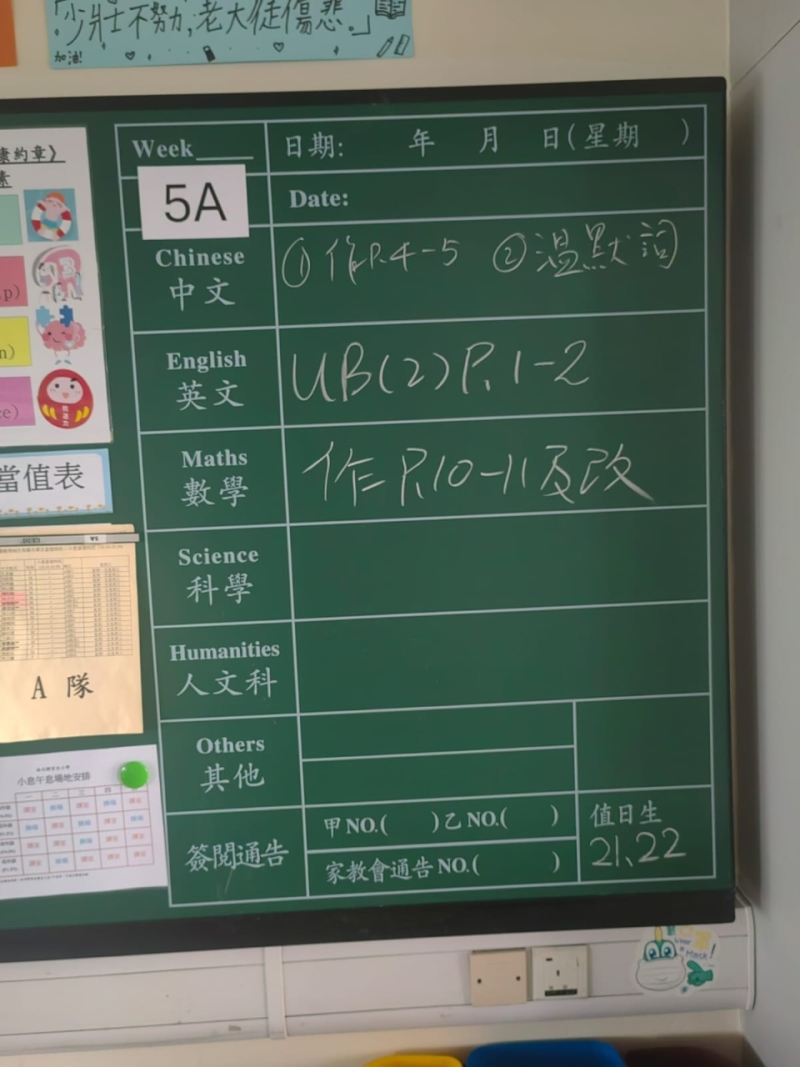 「少壯士不努力,老大徒傷悲。」
加油!
康約章》
素
.p)
n)
ce)
當值表
A 隊
小息午息場地安排
Week____ 日期: 年 月 日(星期 )
5A Date:
Chinese 中文 ①作P.4-5 ②溫默詞
English 英文 UB(2) P.1-2
Maths 數學 作P.10-11及改
Science 科學
Humanities 人文科
Others 其他
簽閱通告 甲NO.( )乙NO.( )
家教會通告NO.( )
值日生
21、22
Wear a Mask!